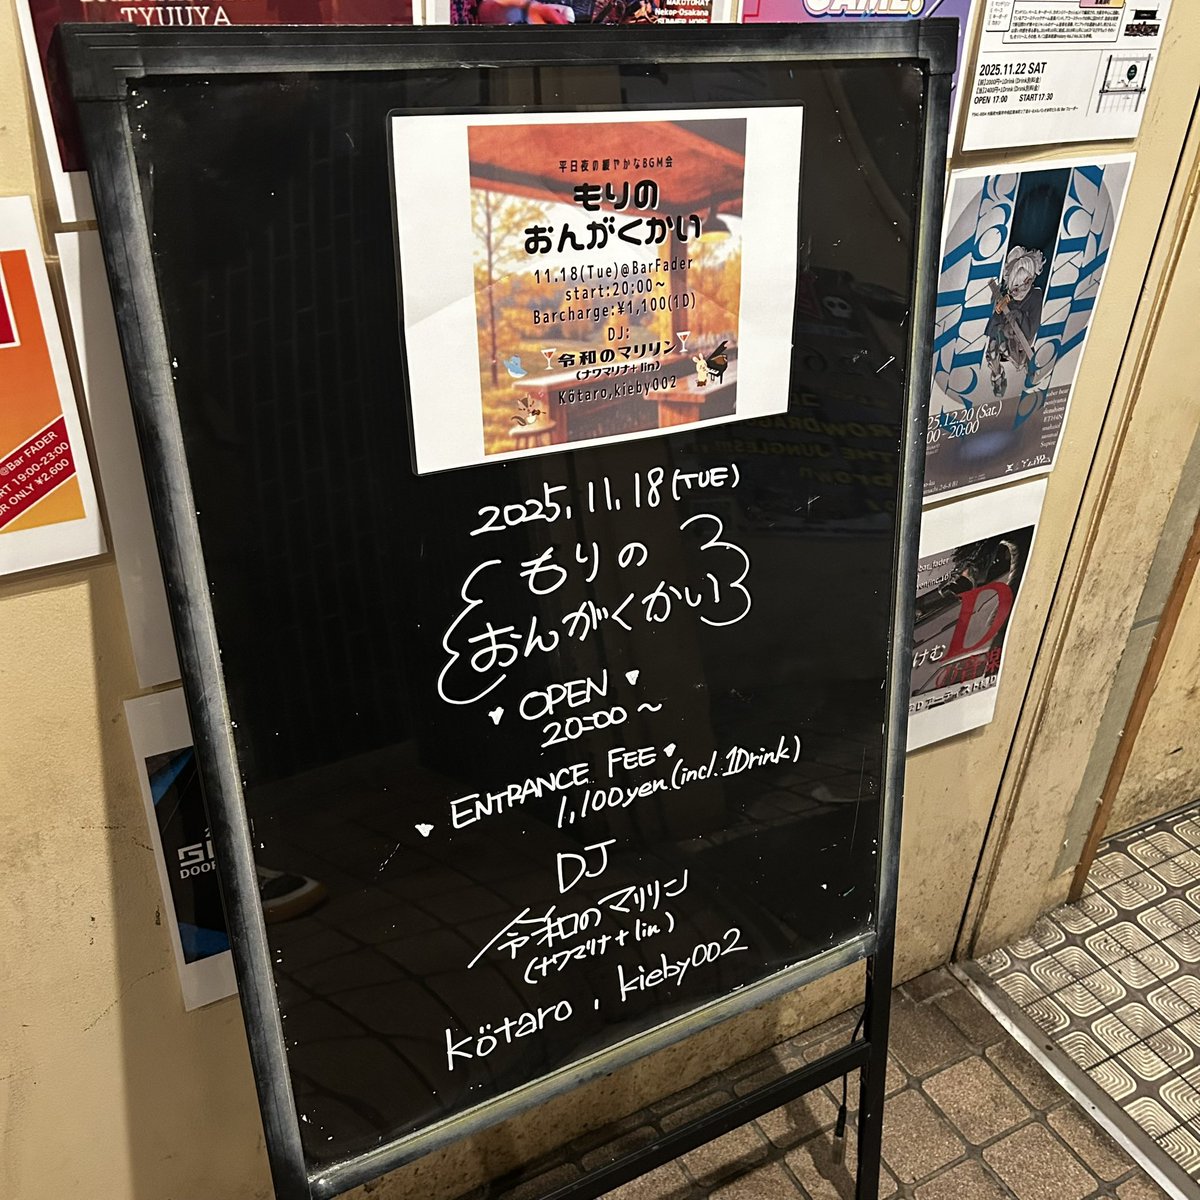 TYUUYA
MAKOTOHAT
Nekop-Osakana
GAME!
2025.11.22 SAT
OPEN 17:00 START 17:30
平日夜の緩やかなBGM会
もりの
おんがくかい
11.18(Tue)@BarFader
start:20:00~
Barcharge:¥1,100(1D)
DJ:
令和のマリリン
(ナワマリナ+lin)
Kötaro,kieby002
2025.11.18(TUE)
もりの
おんがくかい
OPEN
20:00~
ENTRANCE FEE
1,100yen(incl.1Drink)
DJ
令和のマリリン
(ナワマリナ+lin)
kötaro, kieby002
@Bar FADER
19:00-23:00
ONLY ¥2,600
12.20(Sat.)
20:00
D